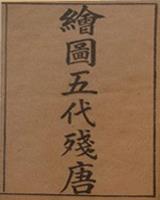 繪圖五代殘唐